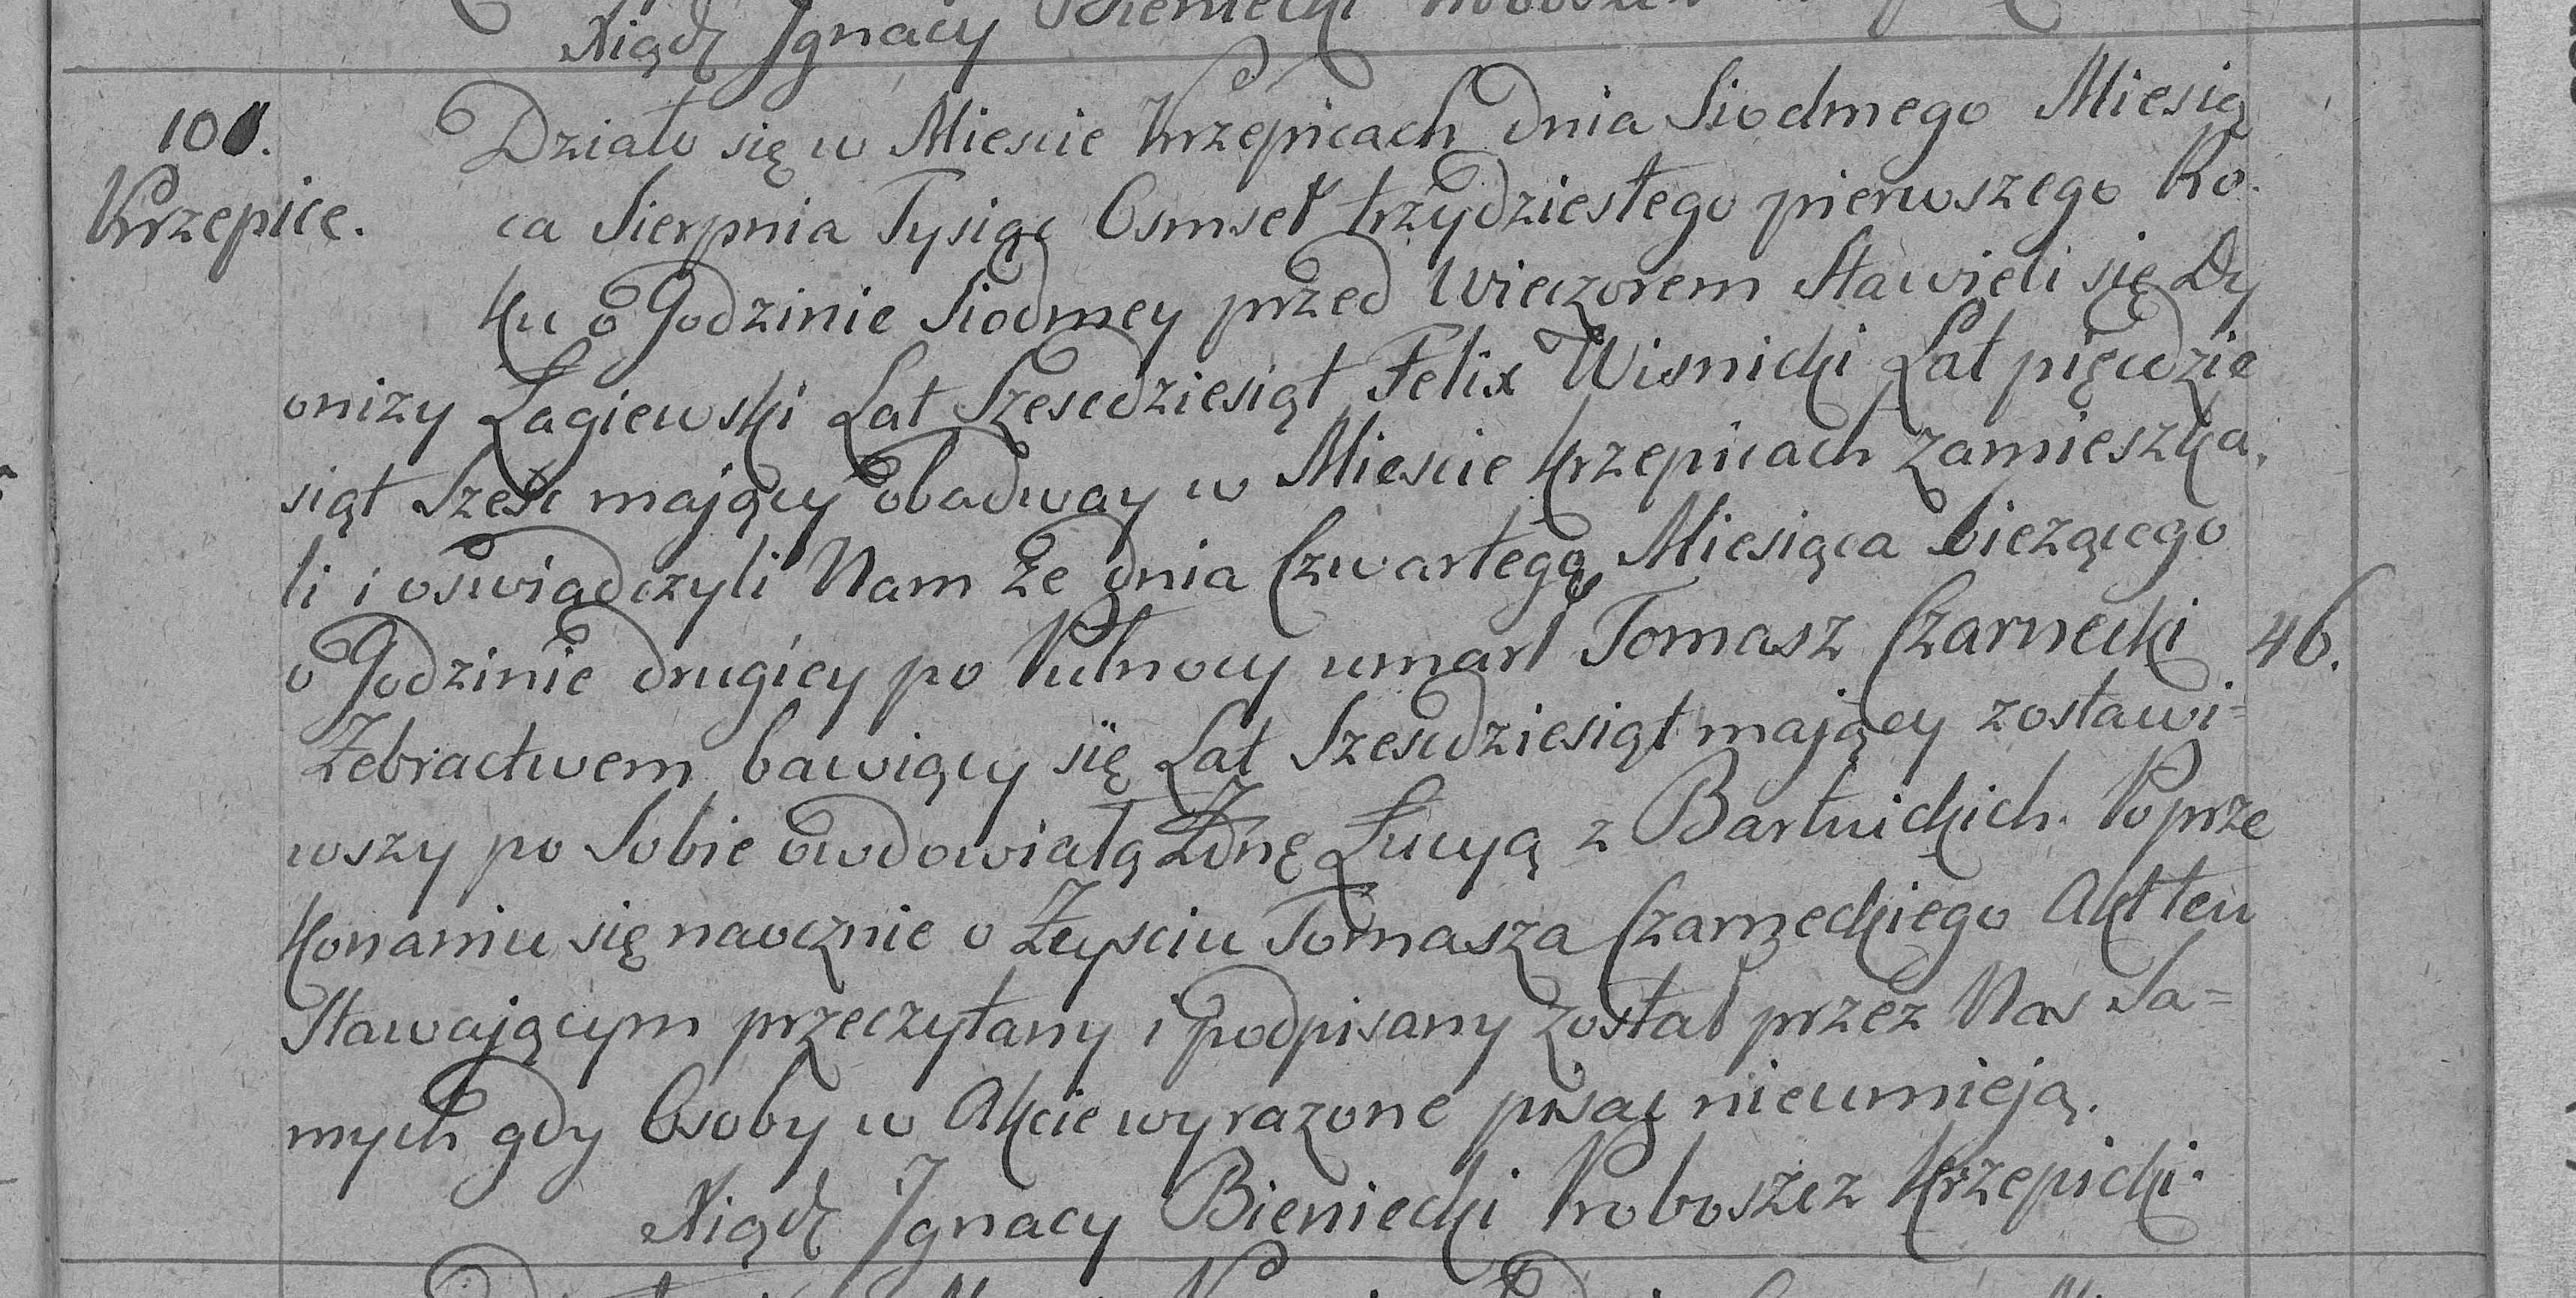 Xiądz Ignacy Bieniecki
101.
Krzepice.
Działo się w Mieście Krzepicach dnia Siodmego Miesią
ca Sierpnia Tysiąc Osmset trzydziestego pierwszego Ro
ku o Godzinie Siodmey przed Wieczorem Stawieli się Dy
onizy Łagiewski Lat Szescdziesiąt Felix Wisnicki Lat pięcdzie
siąt Szesc mający obadway w Miescie Krzepicach zamieszka,
li i oswiadczyli Nam że dnia Czwartego Miesiąca bieżącego
o Godzinie drugiey po Pułnocy umarł Tomasz Czarnecki
46.
Żebractwem bawiący się Lat Szescdziesiąt mający zostawi=
wszy po Sobie owdowiałą Żonę Łucyą z Bartnickich. Po prze
konaniu się naocznie o Zeysciu Tomasza Czarneckiego Akt ten
Stawającym przeczytany i podpisany został przez Nas Sa=
mych gdy Osoby w Akcie wyrazone pisac nieumieją.
Xiądz Ignacy Bieniecki Proboszcz Krzepicki.